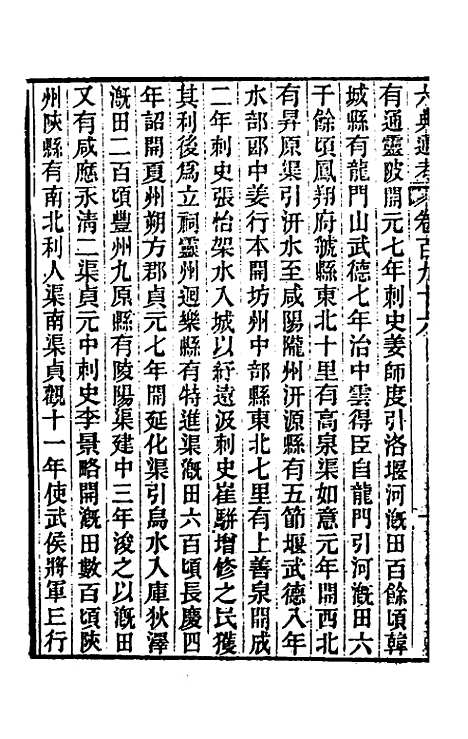 六典通考 卷百九十六
有通靈陂開元七年刺史姜師度引洛堰河漑田百餘頃韓
城縣有龍門山武德七年治中雲得臣自龍門引河漑田六
千餘頃鳳翔府虢縣東北十里有高泉渠如意元年開西北
有昇原渠引汧水至咸陽隴州汧源縣有五節堰武德八年
水部郎中姜行本開坊州中部縣東北七里有上善泉開成
二年刺史張怡架水入城以紓遠汲刺史崔駢增修之民獲
其利後爲立祠靈州迴樂縣有特進渠漑田六百頃長慶四
年詔開夏州朔方郡貞元七年開延化渠引烏水入庫狄澤
漑田二百頃豐州九原縣有陵陽渠建中三年浚之以漑田
又有咸應永清二渠貞元中刺史李景略開漑田數百頃陝
州陝縣有南北利人渠南渠貞觀十一年使武侯將軍王行